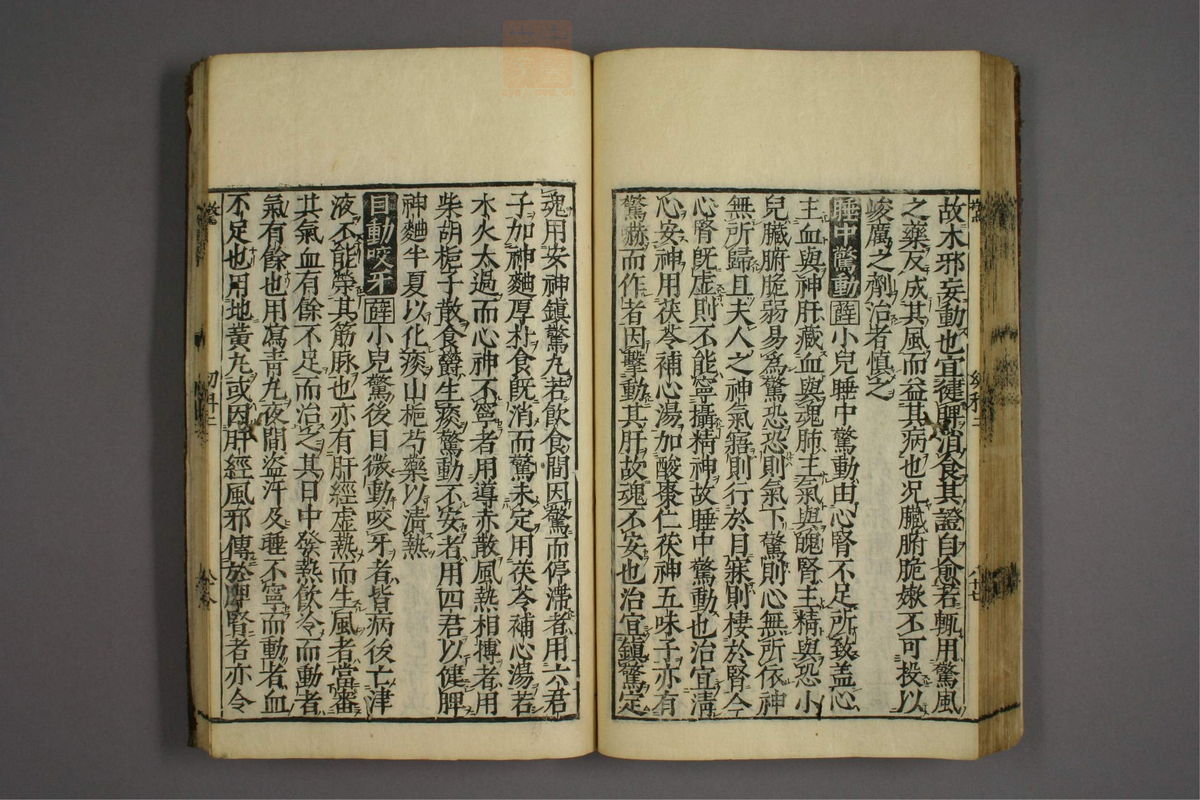 故木邪妄動也宜健脾消食其證自愈若輒用驚風
之藥反成其風而益其病也况臟腑脆嫰不可投以
峻厲之劑治者慎之
睡中驚動 薛 小兒睡中驚動由心腎不足所致盖心
主血與神肝藏血與魂肺主氣與魄腎主精與恐小
兒臟腑脆弱易為驚恐恐則氣下驚則心無所依神
無所歸且夫人之神氣寤則行於目寐則棲於腎今
心腎既虛則不能寧攝精神故睡中驚動也治宜清
心安神用茯苓補心湯加酸棗仁茯神五味子亦有
驚嚇而作者因擊動其肝故魂不安也治宜鎮驚定
魂用安神鎮驚丸若飲食間因驚而停滯者用六君
子加神麯厚朴食既消而驚未定用茯苓補心湯若
木火太過而心神不寧者用導赤散風熱相博者用
柴胡梔子散食鬱生痰驚動不安者用四君以健脾
神麯半夏以化痰山梔芍藥以清熱
目動咬牙 薛 小兒驚後目微動咬牙者皆病後亡津
液不能榮其筋脉也亦有肝經虛熱而生風者當審
其氣血有餘不足而治之其日中發熱飲冷而動者
氣有餘也用瀉青丸夜間盗汗及睡不寧而動者血
不足也用地黃丸或因肝經風邪傳於脾腎者亦令
幼科二
八十七